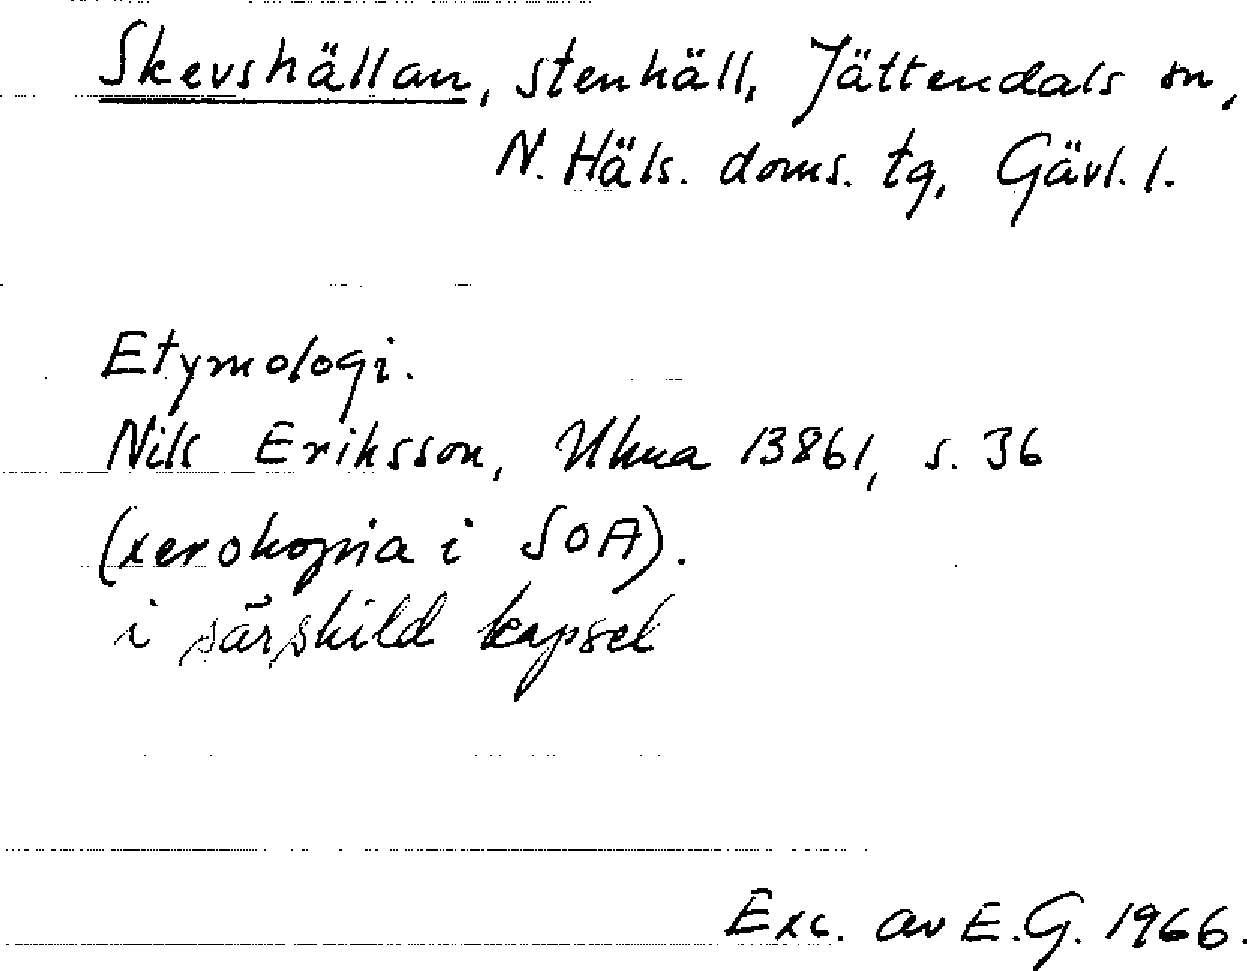 Skevshällan, stenhäll, Jättendals sn,
N. Häls. doms. tg, Gävl. l.
Etymologi.
Nils Eriksson, Ukua 13861, s. 36
(xerokopia i SOA).
i särskild kapsel
Exc. av E.G. 1966.